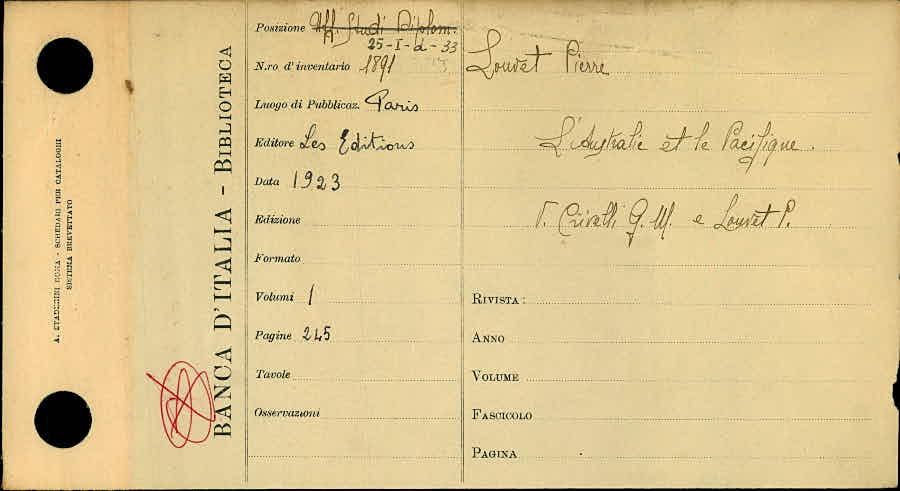 A. STADERINI ROMA - SCHEDARI PER CATALOGHI
SISTEMA BREVETTATO
BANCA D'ITALIA - BIBLIOTECA
Posizione Uff. Studi Diplom.
25-I-d-33
N.ro d'inventario 1891
Luogo di Pubblicaz. Paris
Editore Les Editions
Data 1923
Edizione
Formato
Volumi 1
Pagine 245
Tavole
Osservazioni
Louvet Pierre
L'Australie et le Pacifique.
V. Crivelli G. M. e Louvet P.
RIVISTA:
ANNO
VOLUME
FASCICOLO
PAGINA